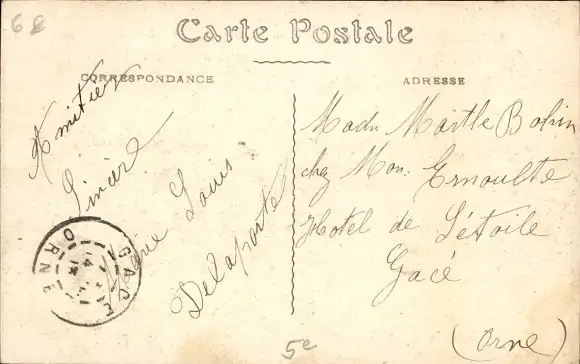 6
Carte Postale
CORRESPONDANCE
ADRESSE
Amitier
Sincère
Louis
Delaporte
GACÉ
ORNE
Madn Marthe Bobin
chez Mon. Ernoulte
Hotel de L'étoile
Gacé
(Orne)
5e